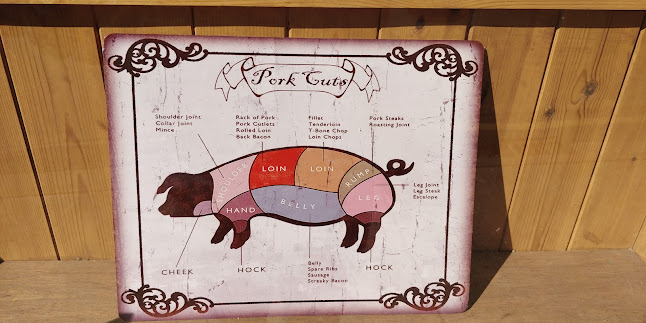 Pork Cuts
Shoulder Joint
Collar Joint
Mince
Rack of Pork
Pork Cutlets
Rolled Loin
Back Bacon
Fillet
Tenderloin
T-Bone Chop
Loin Chops
Pork Steaks
Roasting Joint
SHOULDER
LOIN
LOIN
RUMP
HAND
BELLY
LEG
Leg Joint
Leg Steak
Escalope
CHEEK
HOCK
Belly
Spare Ribs
Sausage
Streaky Bacon
HOCK